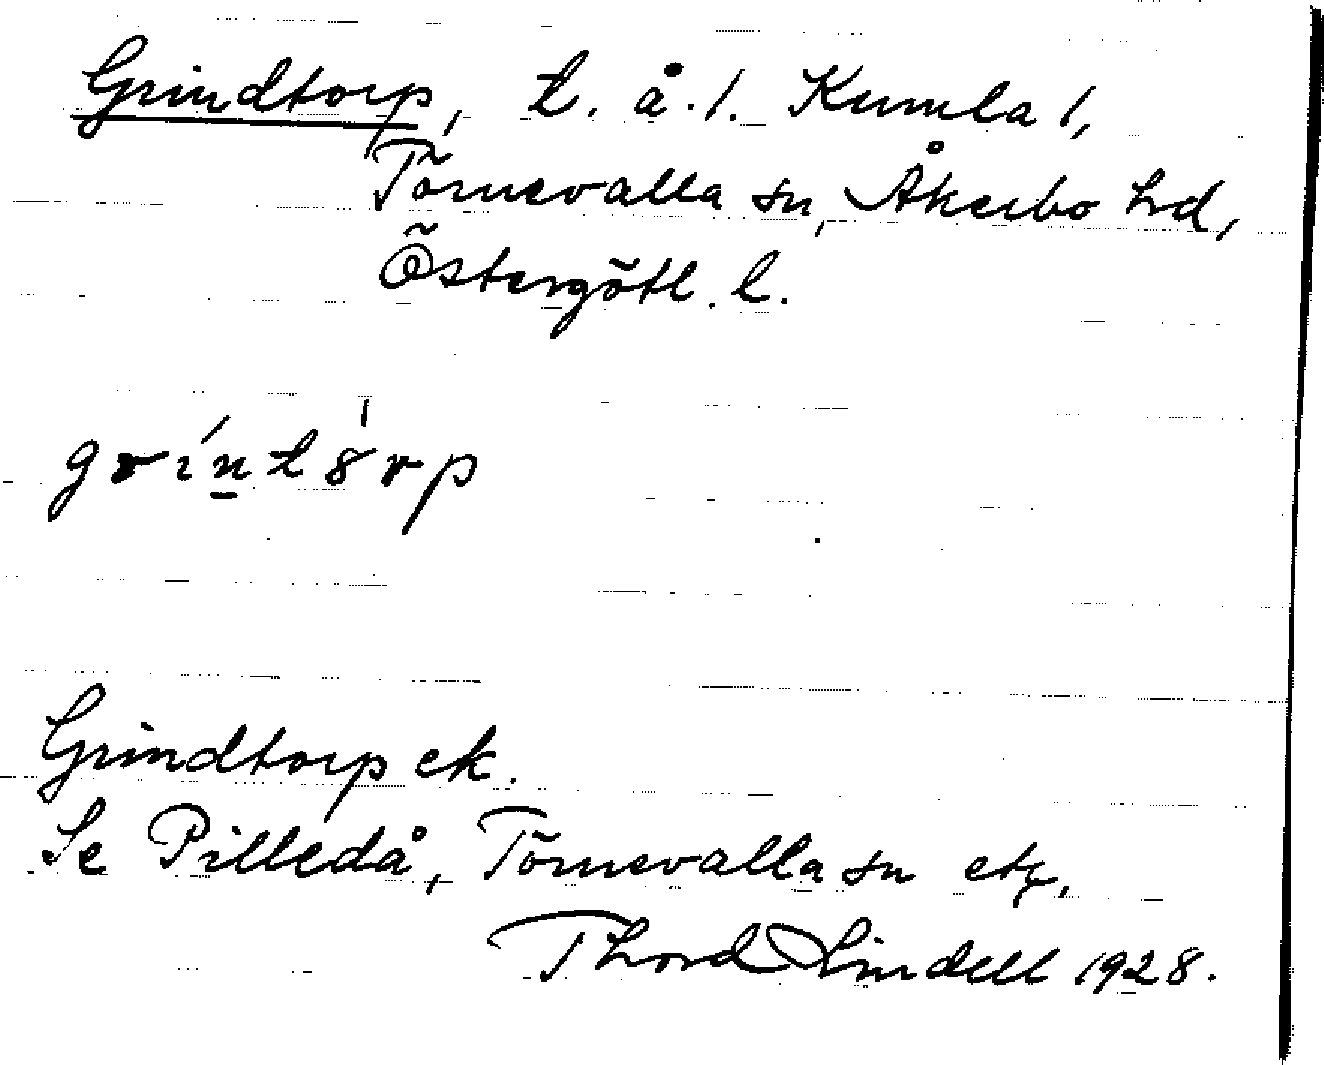 Grindtorp, t. å. 1. Kumla 1,
Törnevalla sn, Åkerbo hd,
Östergötl. l.
gríntȣ́rp
Grindtorp ek.
Se Pilledå, Törnevalla sn etc.
Thord Lindell 1928.